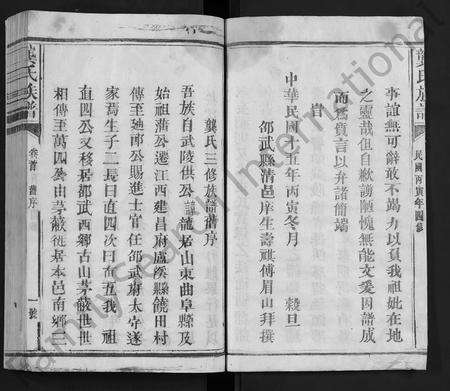 龔氏族譜
民國丙寅年四修
事誼無可辭敢不竭力以負我祖妣在地
之靈哉但自歉謭陋愧無能文爰因譜成
而僭贅言以弁諸簡端
旹
中華民國十五年丙寅冬月 穀旦
邵武縣清邑庠生壽祺傅眉山拜撰
龔氏三修族譜舊序
吾族自武陵供公諱龍居山東曲阜縣及
始祖蒲公遷江西建昌府盧溪縣饒田村
傳至廸郙公賜進士官任邵武府太守遂
家焉生子二長曰直四次曰直五我 祖
直四公又移居邵武西鄉古山茅蔽世世
相傳至萬四公由茅蔽徙居本邑南鄉
龔氏族譜
卷首 舊序
一號
Family Search International